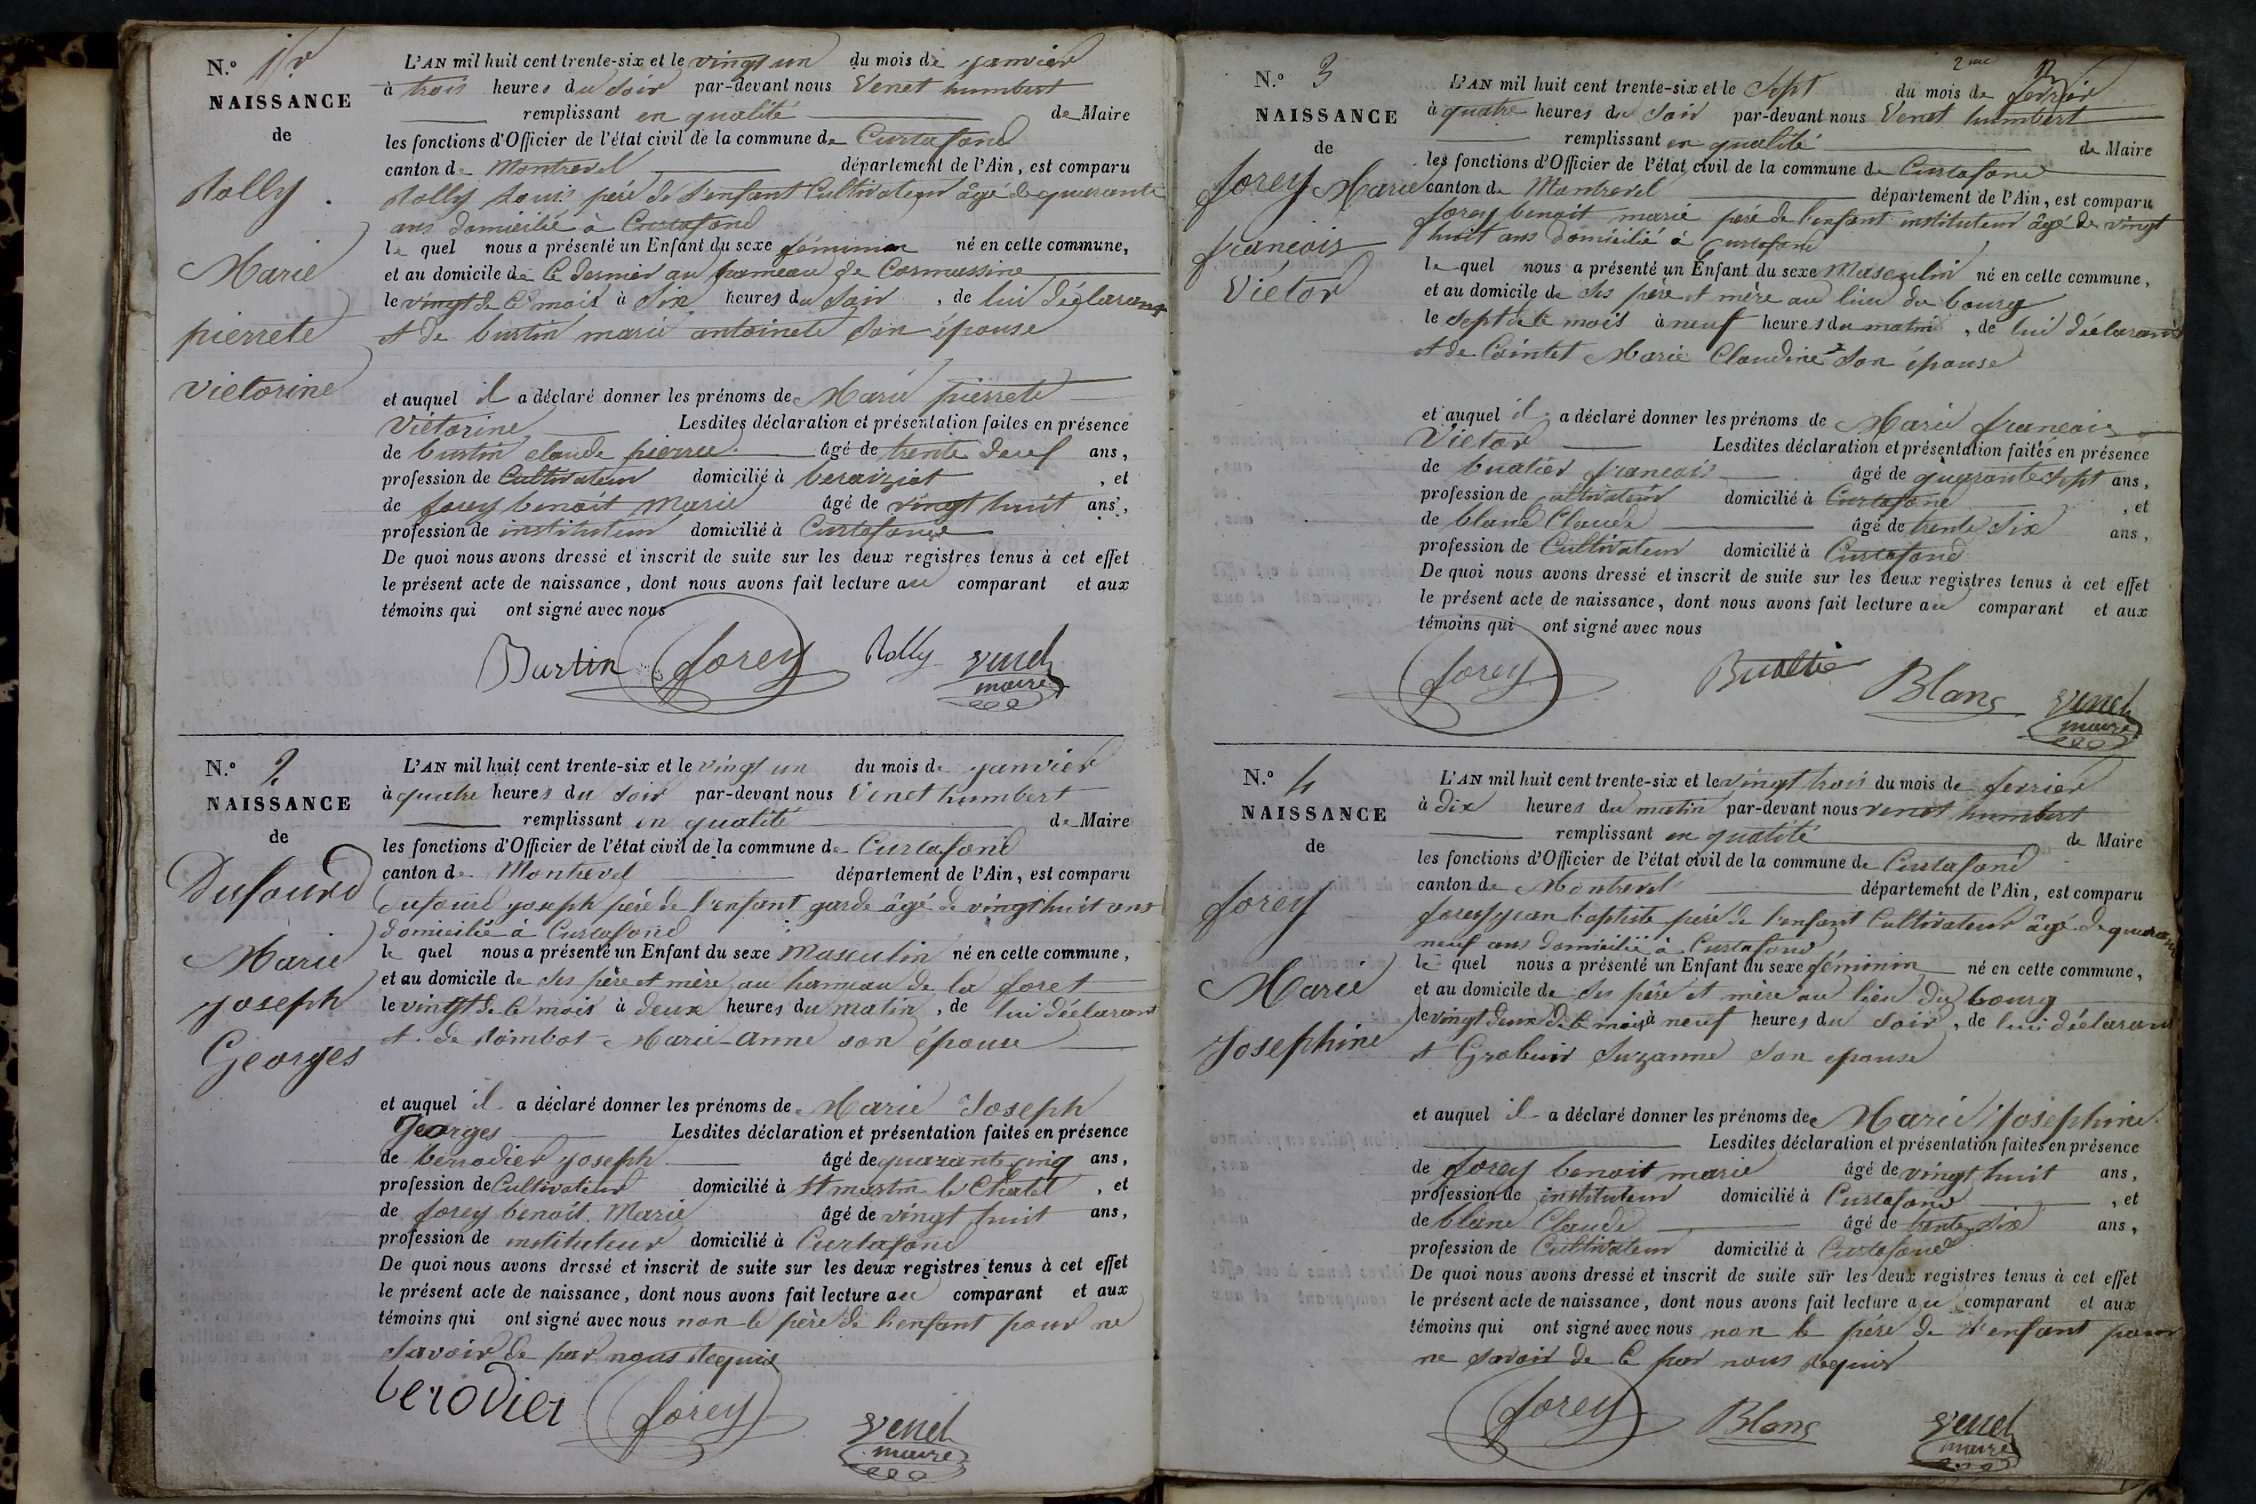 N.° 1er
NAISSANCE
de
Rolly
Marie
pierrete
victorine
L'AN mil huit cent trente-six et le vingt un du mois de janvier
à trois heures du soir par-devant nous Venet humbert
remplissant en qualité de Maire
les fonctions d'Officier de l'état civil de la commune de Curtafond
canton de Montrevel département de l'Ain, est comparu
Rolly Louis père de l'enfant Cultivateur âgé de quarante
ans domicilié à Curtafond
le quel nous a présenté un Enfant du sexe féminin né en cette commune,
et au domicile de ce dernier au hameau de Cormassine
le vingt de ce mois à six heures du soir, de lui déclarant
et de burtin marie antoinete son épouse
et auquel il a déclaré donner les prénoms de Marie pierrete
Victorine Lesdites déclaration et présentation faites en présence
de burtin claude pierre âgé de trente deuf ans,
profession de Cultivateur domicilié à beraiziat, et
de forey benoit Marie âgé de vingt huit ans,
profession de instituteur domicilié à Curtafond
De quoi nous avons dressé et inscrit de suite sur les deux registres tenus à cet effet
le présent acte de naissance, dont nous avons fait lecture au comparant et aux
témoins qui ont signé avec nous
Burtin forey Rolly Venet
maire
N.° 2
NAISSANCE
de
Dufourd
Marie
joseph
Georges
L'AN mil huit cent trente-six et le vingt un du mois de janvier
à quatre heures du soir par-devant nous Venet humbert
remplissant en qualité de Maire
les fonctions d'Officier de l'état civil de la commune de Curtafond
canton de Montrevel département de l'Ain, est comparu
Dufourd joseph père de l'enfant garde âgé de vingt huit ans
domicilié à Curtafond
le quel nous a présenté un Enfant du sexe Masculin né en cette commune,
et au domicile de ses père et mère au hameau de la foret
le vingt de ce mois à deux heures du matin, de lui déclarant
et de Marie-Anne son épouse
et auquel il a déclaré donner les prénoms de Marie Joseph
Georges Lesdites déclaration et présentation faites en présence
de berrodier joseph âgé de quarante cinq ans,
profession de Cultivateur domicilié à St martin le Chatel, et
de forey benoit Marie âgé de vingt huit ans,
profession de instituteur domicilié à Curtafond
De quoi nous avons dressé et inscrit de suite sur les deux registres tenus à cet effet
le présent acte de naissance, dont nous avons fait lecture au comparant et aux
témoins qui ont signé avec nous non le père de l'enfant pour ne
savoir de par nous Requis
berodier forey Venet
maire
2me
N.° 3
NAISSANCE
de
forey Marie
françois
Victor
L'AN mil huit cent trente-six et le Sept du mois de fevrier
à quatre heures du soir par-devant nous Venet humbert
remplissant en qualité de Maire
les fonctions d'Officier de l'état civil de la commune de Curtafond
canton de Montrevel département de l'Ain, est comparu
forey benoit marie père de l'enfant instituteur âgé de vingt
huit ans domicilié à Curtafond
le quel nous a présenté un Enfant du sexe Masculin né en cette commune,
et au domicile de ses père et mère au lieu du bourg
le sept de ce mois à neuf heures du matin, de lui déclarant
et de Cointet Marie Claudine son épouse
et auquel il a déclaré donner les prénoms de Marie françois
Victor Lesdites déclaration et présentation faites en présence
de buatier françois âgé de quarante sept ans,
profession de Cultivateur domicilié à Curtafond, et
de blanc Claude âgé de trente six ans,
profession de Cultivateur domicilié à Curtafond
De quoi nous avons dressé et inscrit de suite sur les deux registres tenus à cet effet
le présent acte de naissance, dont nous avons fait lecture au comparant et aux
témoins qui ont signé avec nous
forey Buatie Blanc Venet
maire
N.° 4
NAISSANCE
de
forey
Marie
Josephine
L'AN mil huit cent trente-six et le vingt trois du mois de fevrier
à dix heures du matin par-devant nous venet humbert
remplissant en qualité de Maire
les fonctions d'Officier de l'état civil de la commune de Curtafond
canton de Montrevel département de l'Ain, est comparu
forey jean baptiste père de l'enfant Cultivateur âgé de quarante
neuf ans domicilié à Curtafond
le quel nous a présenté un Enfant du sexe féminin né en cette commune,
et au domicile de ses père et mère au lieu du bourg
le vingt deux de ce mois à neuf heures du soir, de lui déclarant
et Suzanne son epouse
et auquel il a déclaré donner les prénoms de Marie Josephine
Lesdites déclaration et présentation faites en présence
de forey benoit marie âgé de vingt huit ans,
profession de instituteur domicilié à Curtafond, et
de blanc Claude âgé de trente six ans,
profession de Cultivateur domicilié à Curtafond
De quoi nous avons dressé et inscrit de suite sur les deux registres tenus à cet effet
le présent acte de naissance, dont nous avons fait lecture au comparant et aux
témoins qui ont signé avec nous non le père de l'enfant pour
ne savoir de ce par nous Requis
forey Blanc Venet
maire